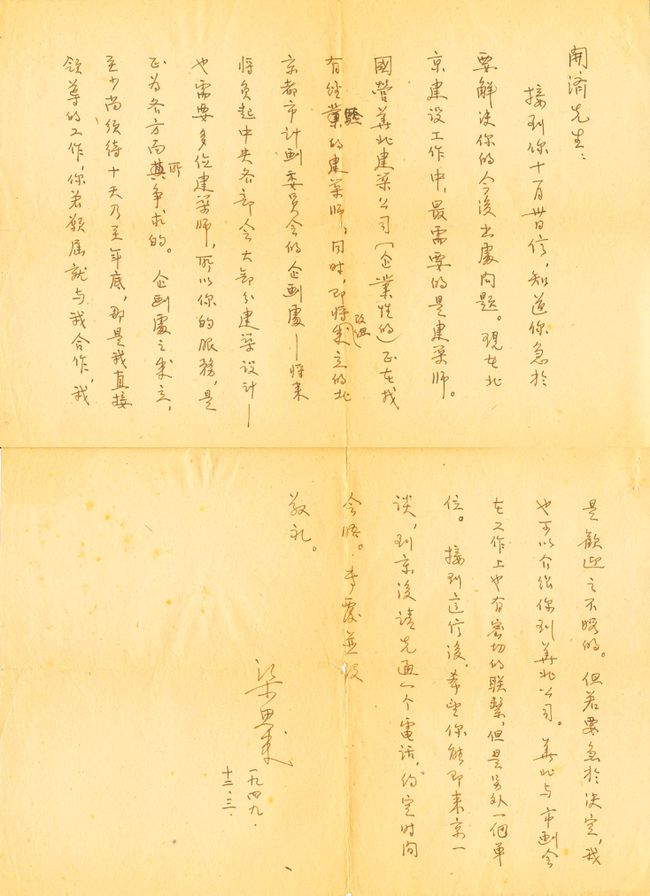 開濟先生：
接到你十一月卅日信，知道你急於
要解决你的今後出處问题。現在北
京建设工作中，最需要的是建築师。
國營華北建築公司（企業性的）正在找
有经驗的建築师，同时，即将成立（改组）的北
京都市計劃委员会的企劃處—将来
将负起中央各部会大部分建筑设计—
也需要多位建築师，所以你的服務，是
正为各方面所争求的。企劃處之成立，
至少尚须待十天乃至年底，那是我直接
领导的工作，你若願屈就与我合作，我
是歡迎之不暇的。但若要急於决定，我
也可以介绍你到華北公司。華北与市劃会
在工作上也有密切的联繫，但是另外一個單
位。接到这信後，希望你能即来京一
谈，到京後請先通一个電话，约定时间
会晤。专覆並致
敬礼。
梁思成
一九四九．
十二．三．